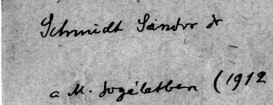 Schmidt Sándor dr
a M. Jogéletben (1912